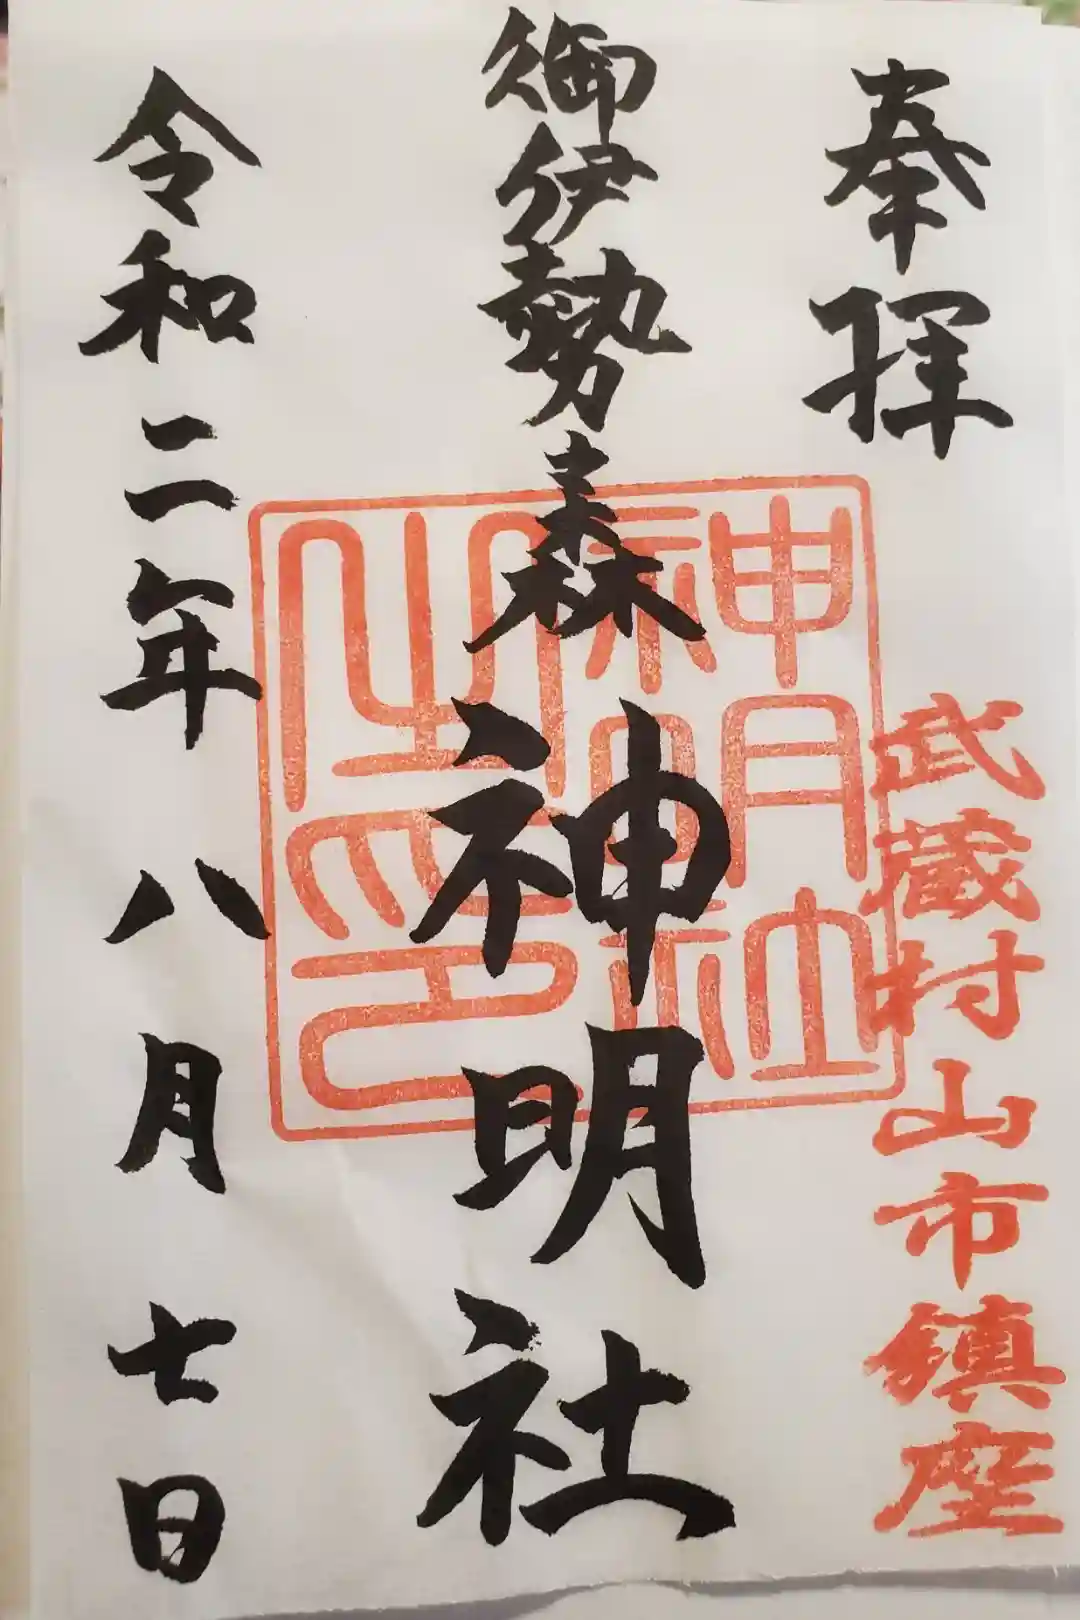 奉拝
武蔵村山市鎮座
御伊勢森
神明社
神明社
神明社
之印
令和二年八月七日